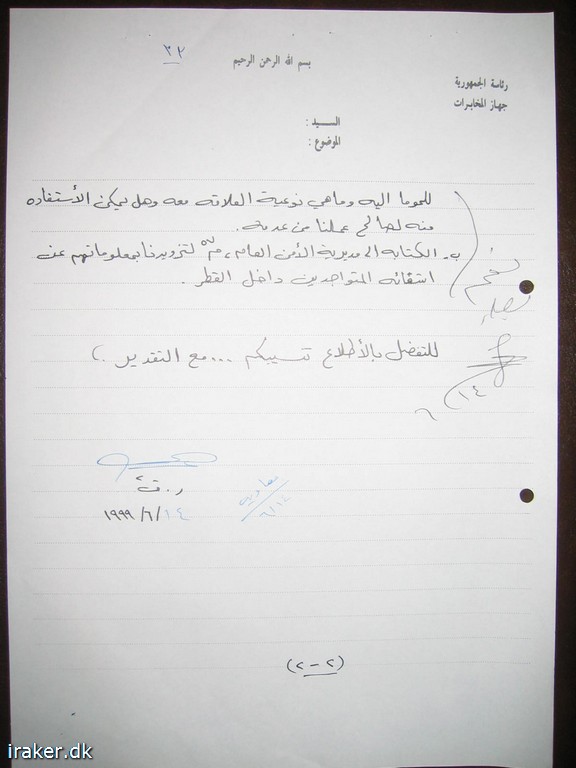 ٣٢
بسم الله الرحمن الرحيم
رئاسة الجمهورية
جهاز المخابرات
السيد :
الموضوع :
للموما اليه وماهي نوعية العلاقه معه وهل يمكن الأستفاده
منه لصالح عملنا من عدمه .
ب- الكتابه الى مديرية الأمن العام، لتزويدنا بمعلوماتهم عن
اشقائه المتواجدين داخل القطر .
نعم
١٤/٦
للتفضل بالأطلاع تنسيبكم ... مع التقدير .)
ر. ق٢
١٩٩٩/٦/١٤
معاونيه
٦/١٤
(٢-٢)
iraker.dk